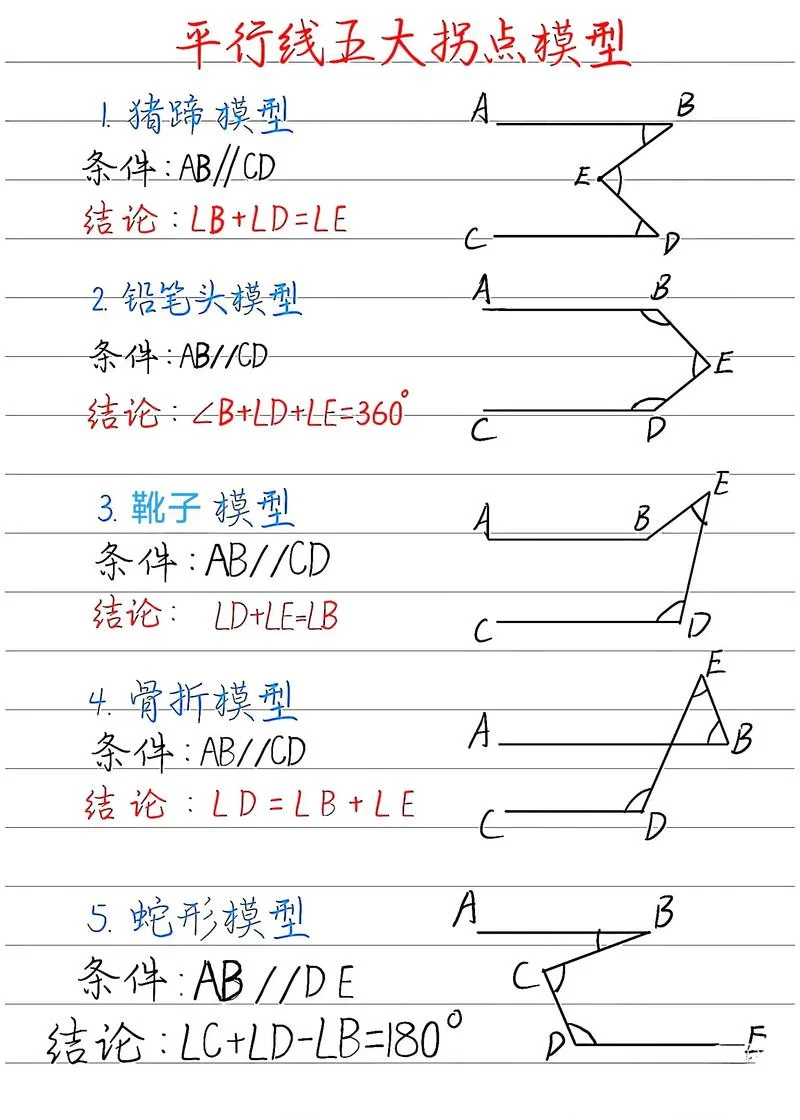 平行线五大拐点模型
1. 猪蹄模型
条件:AB//CD
结论:∠B+∠D=∠E
A B
E
C D
2. 铅笔头模型
条件:AB//CD
结论:∠B+∠D+∠E=360°
A B
E
C D
3. 靴子模型
条件:AB//CD
结论: ∠D+∠E=∠B
E
A B
C D
4. 骨折模型
条件:AB//CD
结论:∠D=∠B+∠E
E
A B
C D
5. 蛇形模型
条件:AB//DE
结论:∠C+∠D-∠B=180°
A B
C
D E